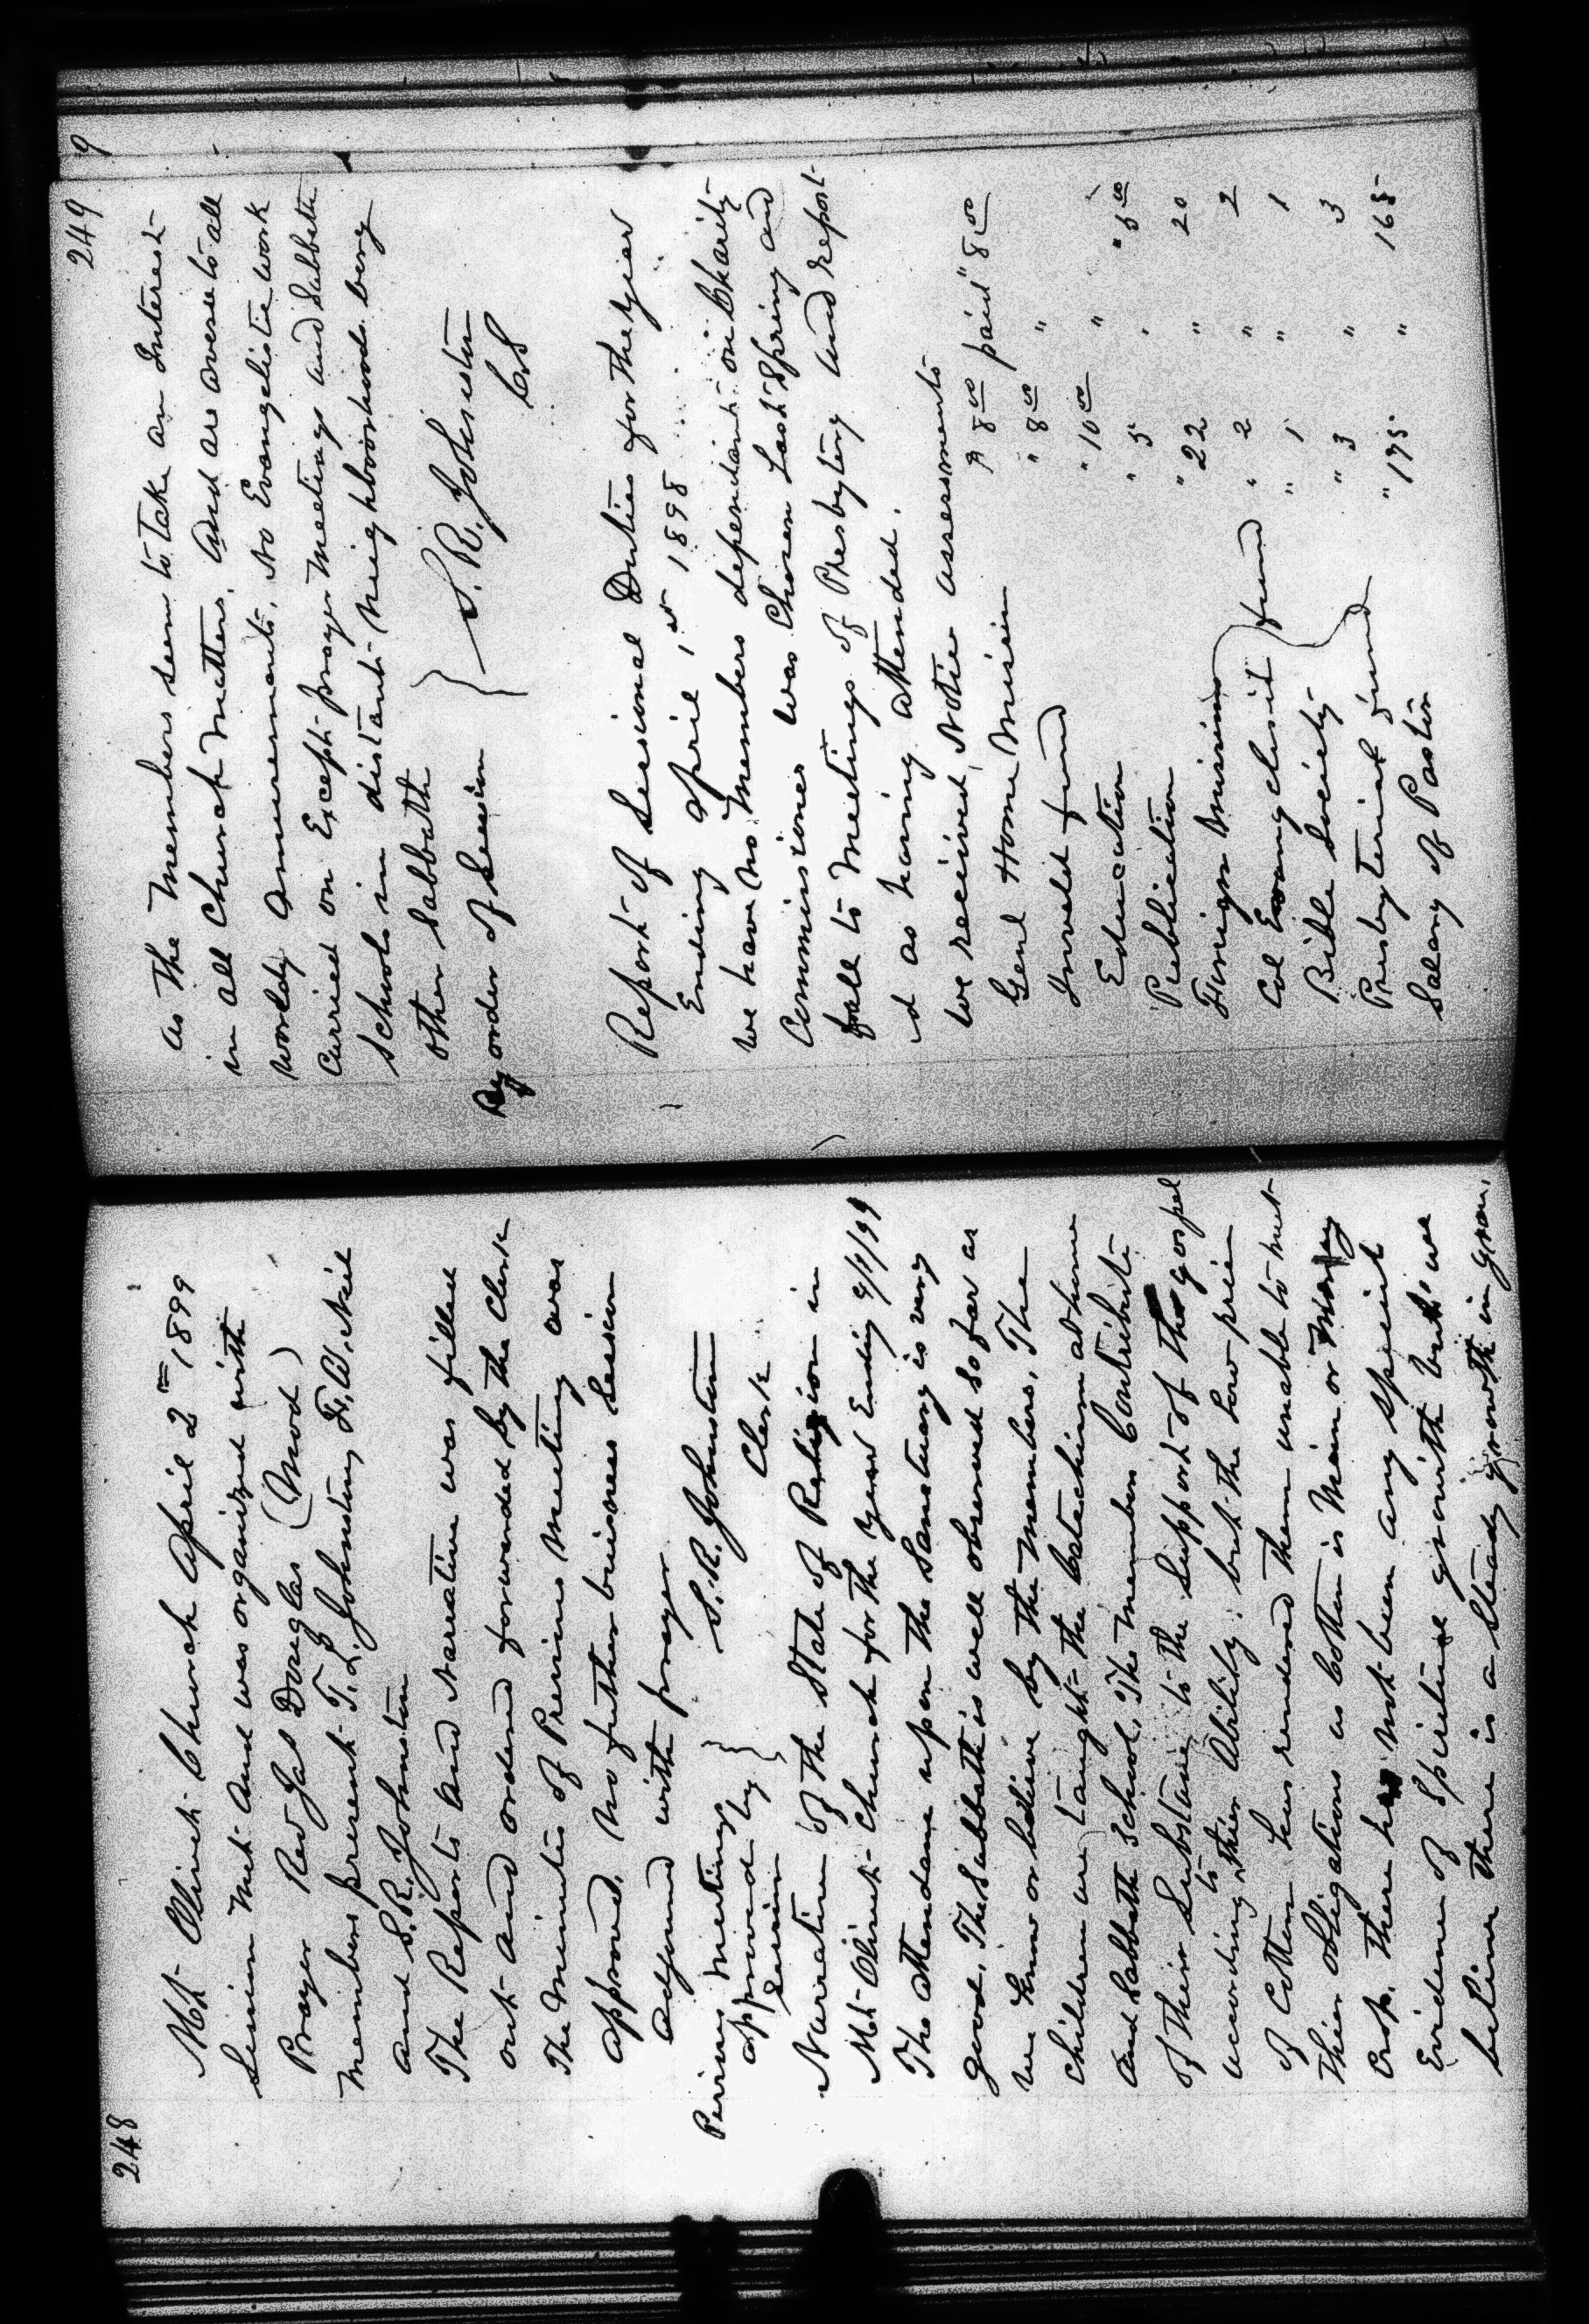 248
Mt. Olivet Church April 2nd 1899
Session met and was organized with
Prayer Rev Jas Douglas (Mod)
Members present T. L. Johnston, F. W. Neil
and S. R. Johnston
The Reports and Narrative was filled
out and ordered forwarded by the Clerk
The minutes of Previous meeting was
approved. No further business Session
adjourned with prayer
Previous meeting } S. R. Johnston
approved by } Clerk
Session }
Narrative of the State of Religion in
Mt Olivet Church for the year Ending 4/1/99
The attendance upon the Sanctuary is very
good. The Sabbath is well observed so far as
we know or believe by the members. The
children are taught the Catechism at home
and Sabbath School. The members Contribute
of their Substance to the Support of the gospel
according to their Ability. but the low price
of Cotton has rendered them unable to meet
their obligations as Cotton is Main or Money
Crop. There has not been any special
Evidence of Spiritual growth but we
believe there is a Steady growth in grace,
249
9
as the members seem to take an Interest
in all Church matters. And are averse to all
worldy Amusements. No Evangelistic work
Carried on Except prayer meetings and Sabbath
Schools in distant neighborhoods. every
other Sabbath
By order of Session } S. R. Johnston
CS
Report of Sessional Duties for the year
Ending April 1st 1898
We have no members dependant on Charity
Commissioner was Chosen Last Spring and
fall to meetings of Presbytery and report
d as having attended.
We received Notice assessments
Genl Home Mission $ 8 00 paid " 8 00
Invalid fund " 8 00 "
Education " 10 00 "
Publication " 5 " " 5 00
Foreign Mission " 22 " 20
Col Evangelist } fund " 2 " 2
Bible Society " 1 " 1
Presbyterial fund " 3 " 3
Salary of Pastor " 175 " 165